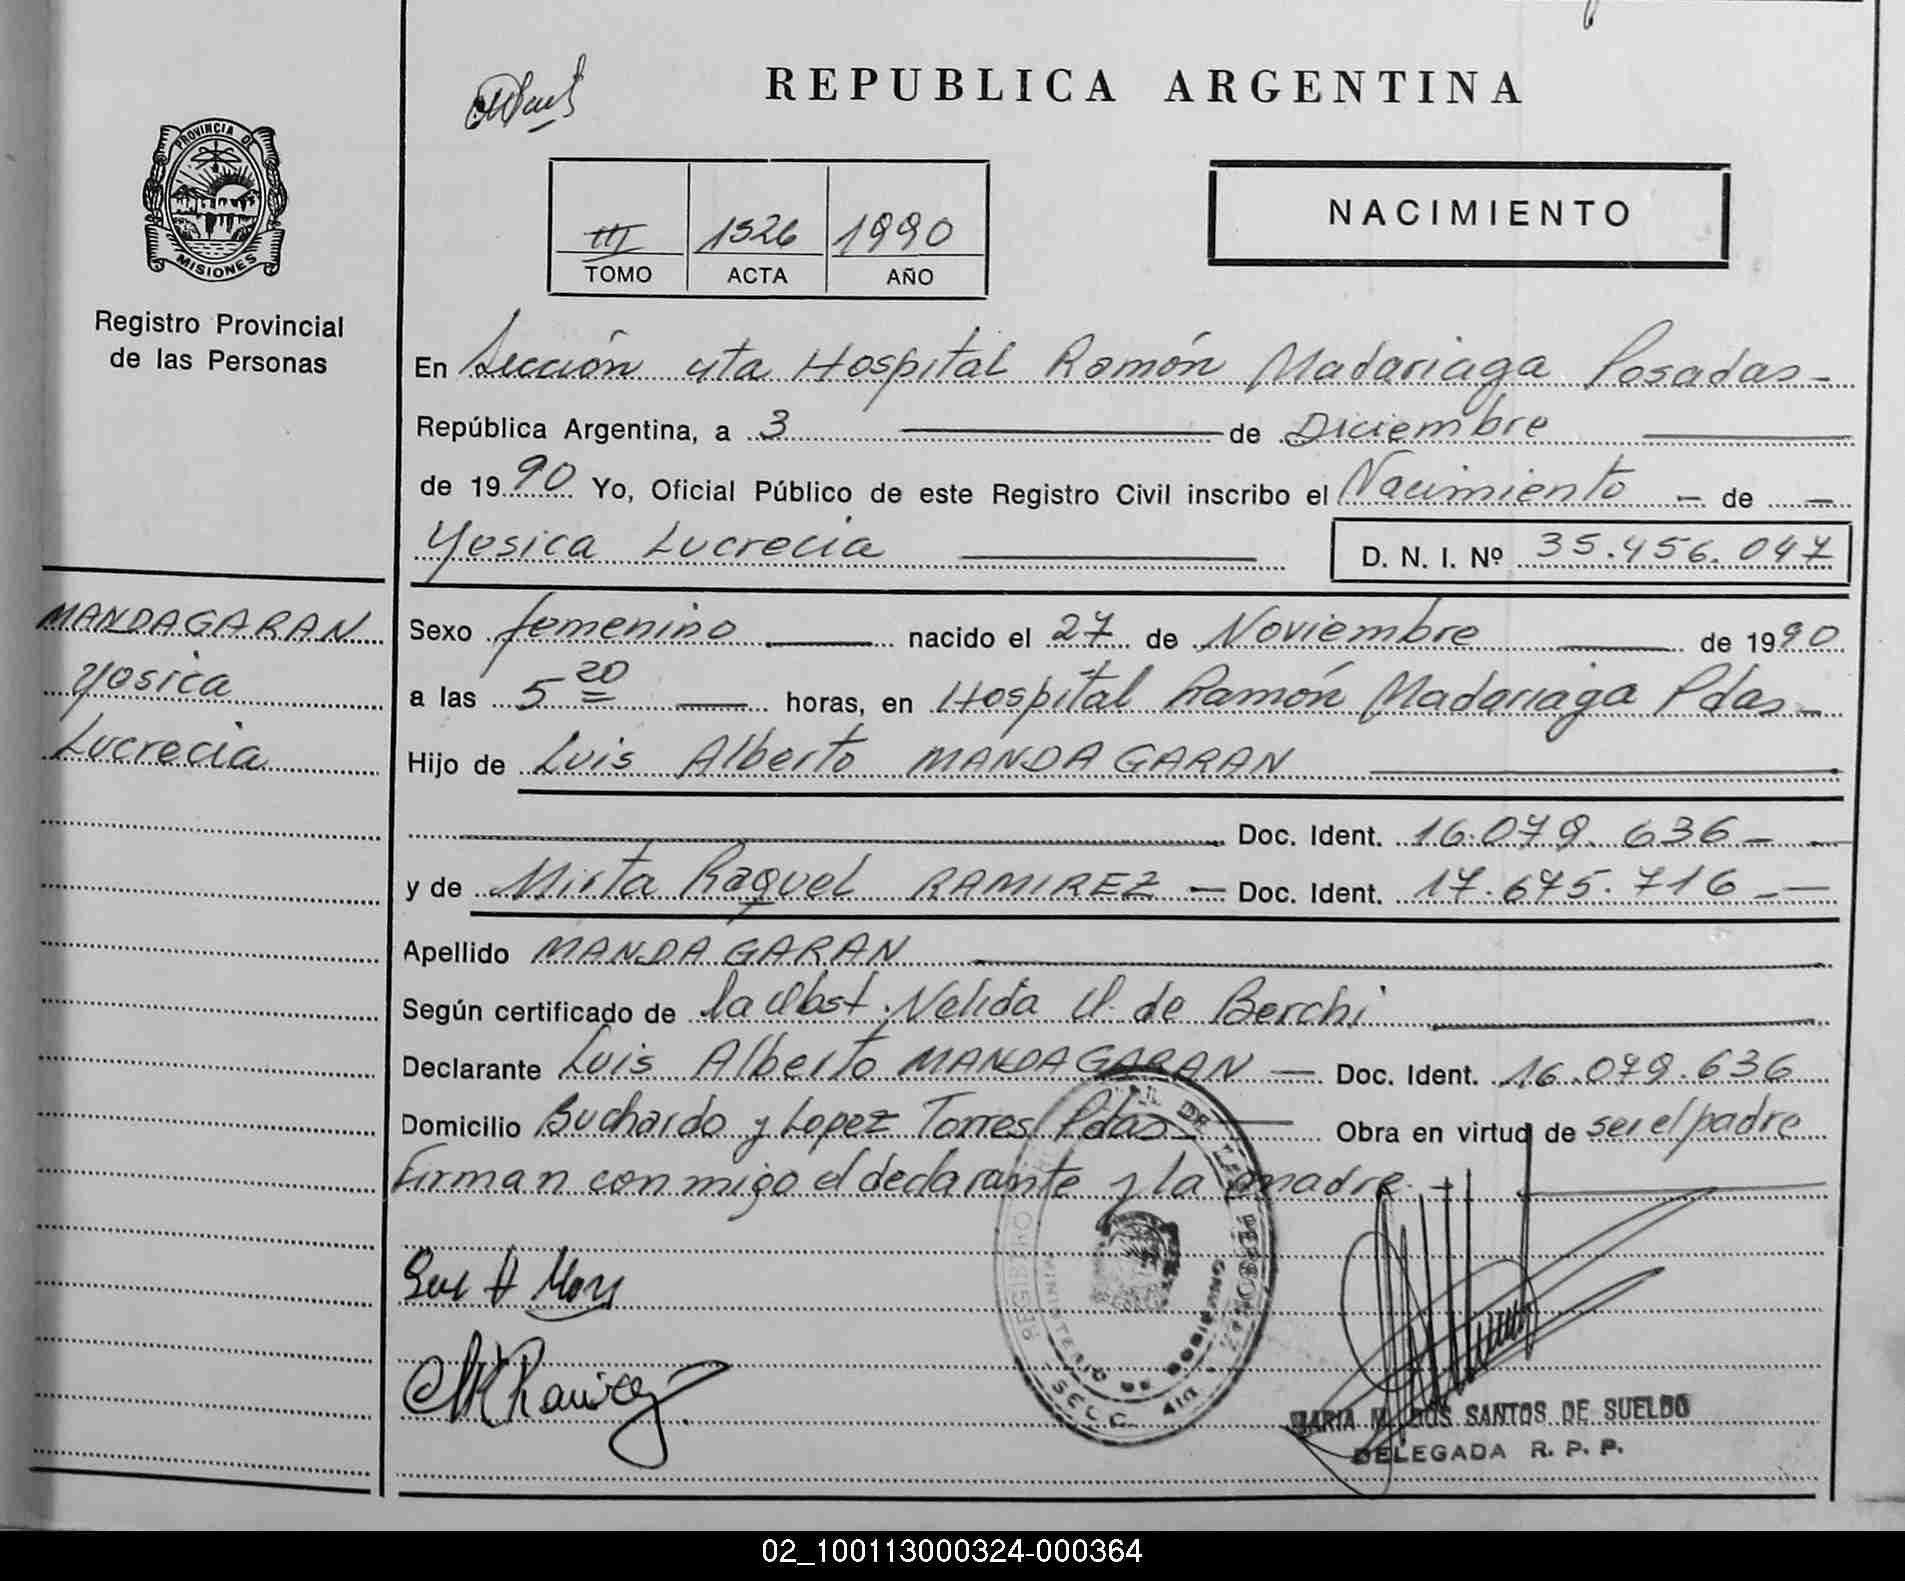 REPUBLICA ARGENTINA
PROVINCIA DE
MISIONES
Registro Provincial
de las Personas
III 1526 1990
TOMO ACTA AÑO
NACIMIENTO
En Sección 4ta Hospital Ramón Madariaga Posadas-
República Argentina, a 3 de Diciembre
de 1990 Yo, Oficial Público de este Registro Civil inscribo el Nacimiento - de -
Yosica Lucrecia D. N. I. Nº 35.456.047
MANDAGARAN
Yosica
Lucrecia
Sexo femenino nacido el 27 de Noviembre de 1990
a las 5 20 horas, en Hospital Ramón Madariaga Pdas-
Hijo de Luis Alberto MANDAGARAN
Doc. Ident. 16.079.636-
y de Mirta Raquel RAMIREZ - Doc. Ident. 17.675.716-
Apellido MANDAGARAN
Según certificado de la Obst. Nelida U. de Berchi
Declarante Luis Alberto MANDAGARAN - Doc. Ident. 16.079.636
Domicilio Buchardo y Lopez Torres Pdas- Obra en virtud de ser el padre
Firman conmigo el declarante y la madre.-
REGISTRO DE LAS PERSONAS
MINISTERIO DE GOBIERNO
SECC. 4ta
MARIA M. DOS SANTOS DE SUELDO
DELEGADA R. P. P.
02_100113000324-000364